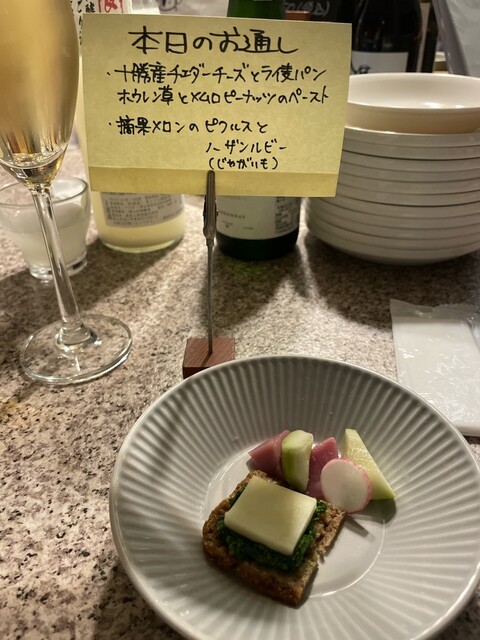 本日のお通し
・十勝産チェダーチーズとライ麦パン
ホウレン草とメムロピーナッツのペースト
・摘果メロンのピクルスと
ノーザンルビー
(じゃがいも)